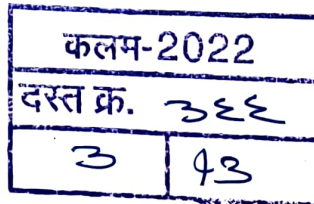 कलम-2022
दस्त क्र. ३६६
३ १३